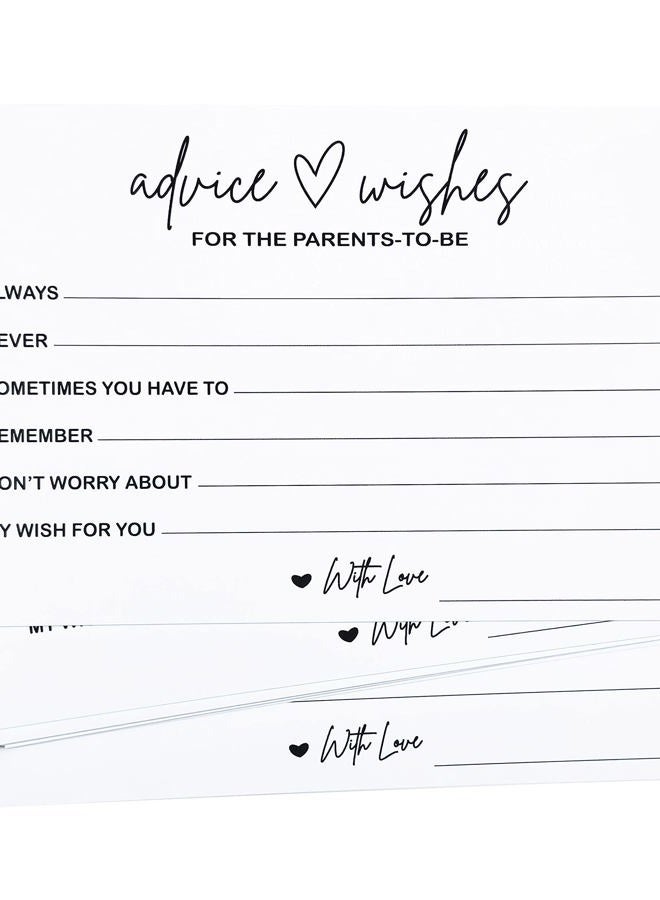 advice ♡ wishes
FOR THE PARENTS-TO-BE
LWAYS
EVER
OMETIMES YOU HAVE TO
EMEMBER
ON'T WORRY ABOUT
Y WISH FOR YOU
♥ With Love
♥ With Lov
♥ With Love